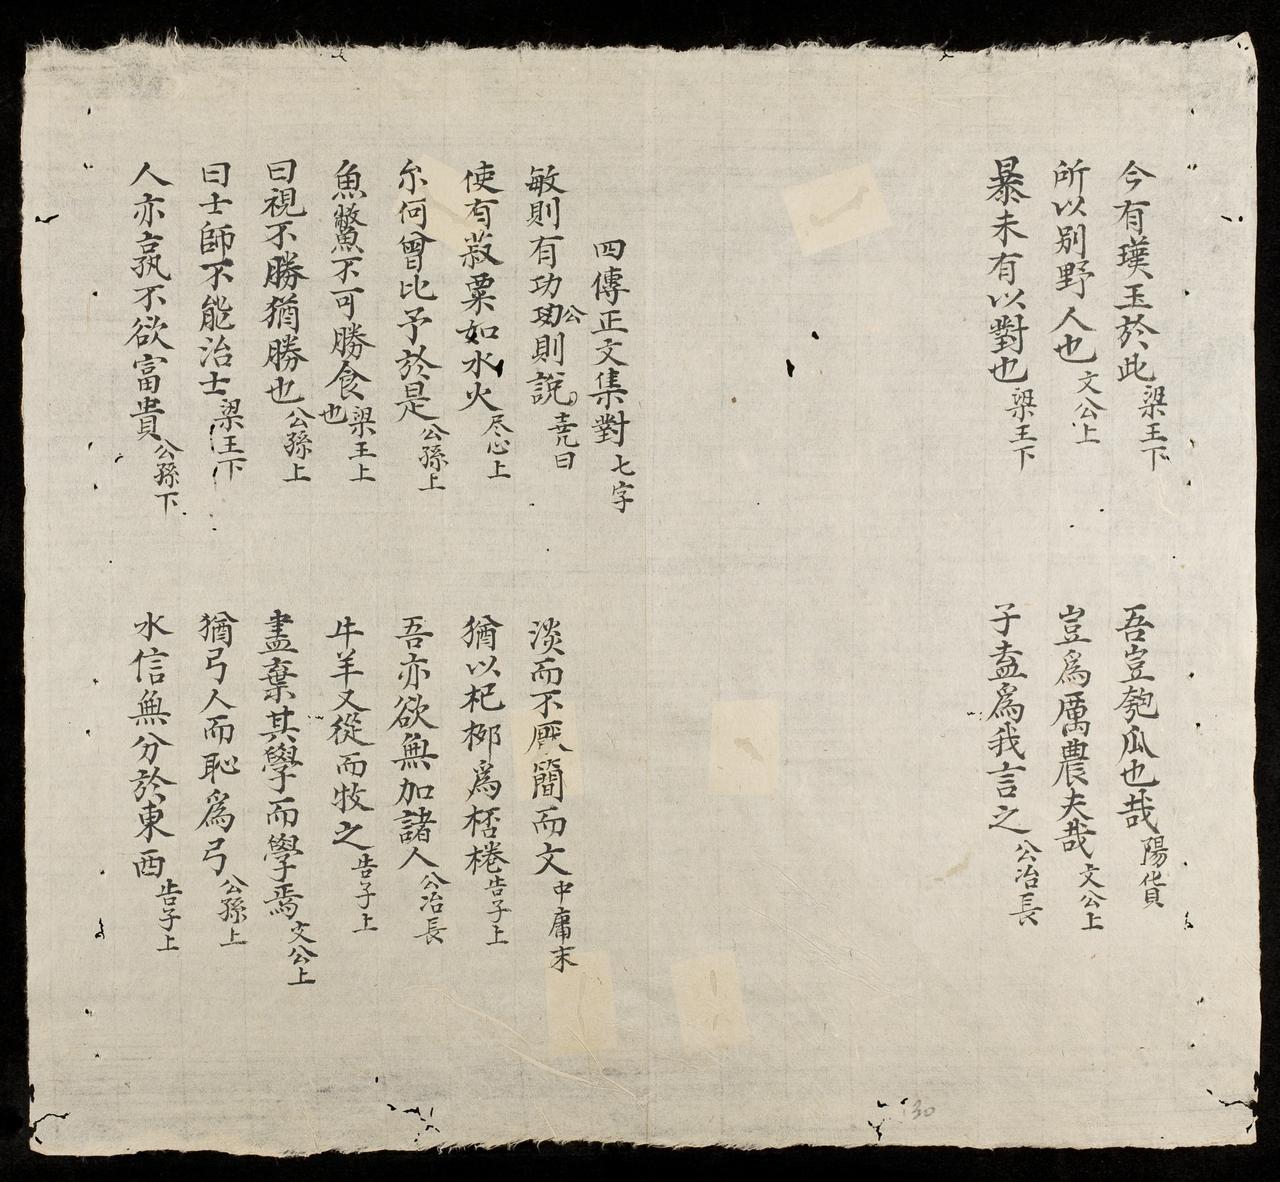 今有璞玉於此 梁王下
吾豈匏瓜也哉 陽貨
所以别野人也 文公上
豈爲厲農夫哉 文公上
暴未有以對也 梁王下
子盍爲我言之 公冶長
四傳正文集對 七字
敏則有功公則說 堯曰
淡而不厭簡而文 中庸末
使有菽粟如水火 尽心上
猶以杞柳爲桮棬 告子上
尔何曾比予於是 公孫上
吾亦欲無加諸人 公冶長
魚鱉不可勝食也 梁王上
牛羊又從而牧之 告子上
曰視不勝猶勝也 公孫上
盡棄其學而學焉 文公上
曰士師不能治士 梁王下
猶弓人而恥爲弓 公孫上
人亦孰不欲富貴 公孫下
水信無分於東西 告子上
130